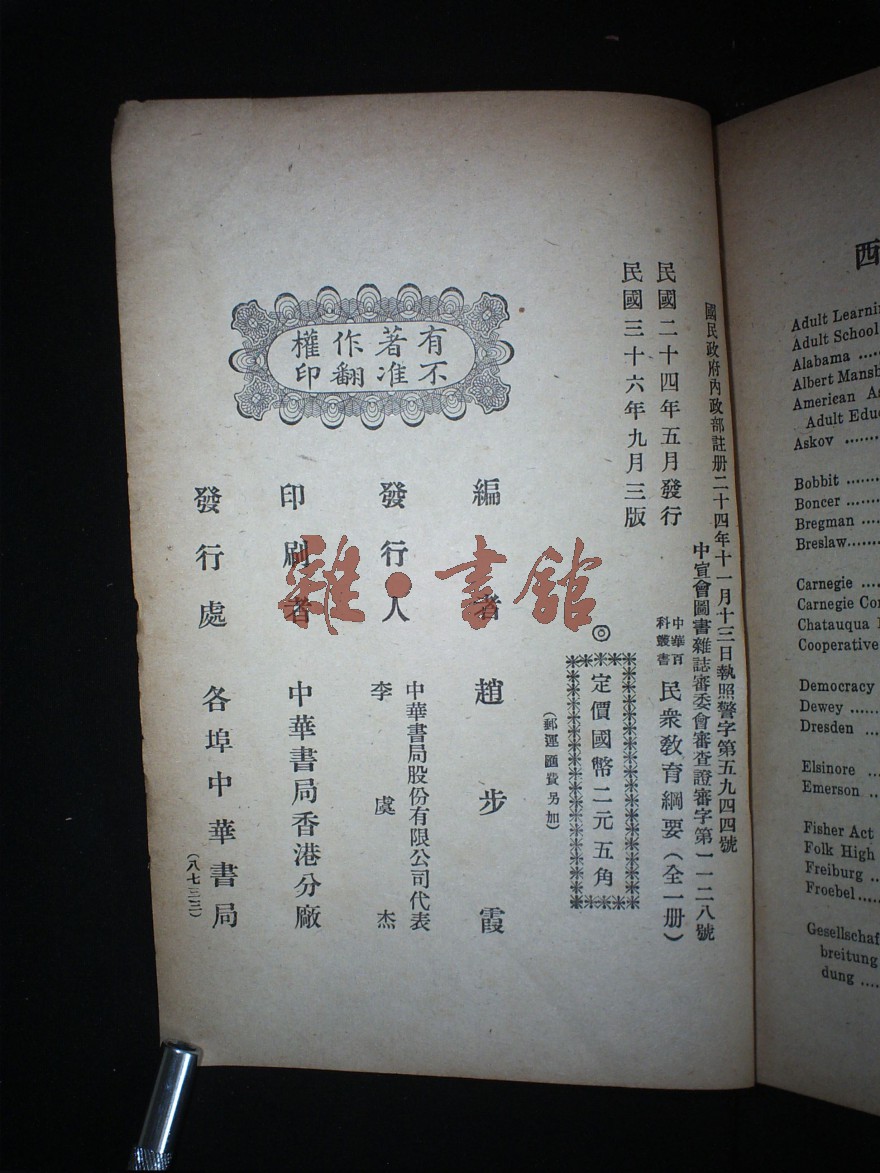 國民政府內政部註册二十四年十一月十三日執照警字第五九四四號
中宣會圖書雜誌審委會審查證審字第一一二八號
民國二十四年五月發行
民國三十六年九月三版
中華百
科叢書
民衆教育綱要(全一册)
◎
定價國幣二元五角
(郵運匯費另加)
有著作權
不准翻印
編者 趙步霞
發行人 中華書局股份有限公司代表
李虞杰
印刷者 中華書局香港分廠
發行處 各埠中華書局
(八七三三)
雜·書館
西
Adult Learni
Adult School
Alabama
Albert Mansb
American As
Adult Educ
Askov
Bobbit
Boncer
Bregman
Breslaw
Carnegie
Carnegie Cor
Chatauqua
Cooperative
Democracy
Dewey
Dresden
Elsinore
Emerson
Fisher Act
Folk High
Freiburg
Froebel
Gesellschaf
breitung
dung